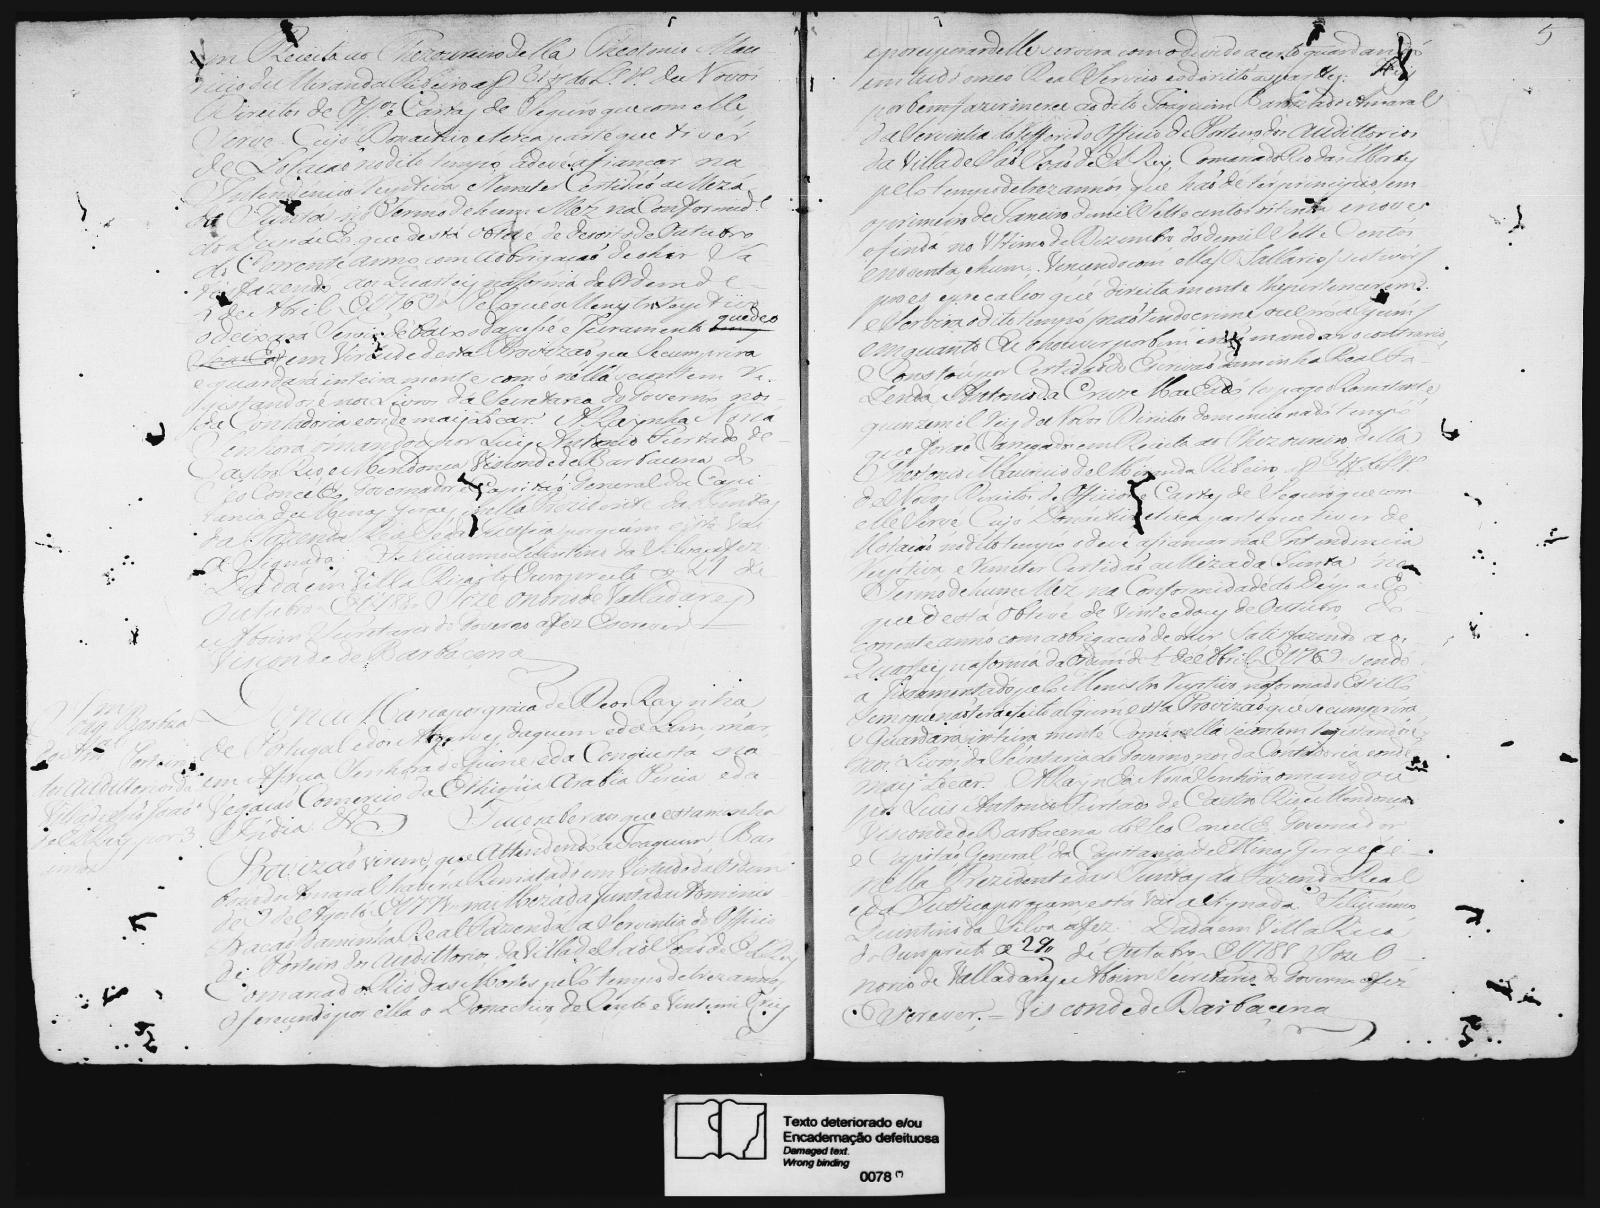 em Receita ao Thezoureiro della Theotonio Mau
ricio de Miranda Ribeiro af do L.º de Novos
Direitos de Off.os e Cartas de Seguro que com elle
Serve. Cujo Donactivo e terça parte que tiver
de Lotação no dito tempo, adeve afiançar na
Intendencia respectiva e remeter Certidão a Meza
da Junta no Termo de hum Mez na Conformid.e
do que desta obteve de Dezoito de Outubro
do Corrente anno com aobrigação de
tisfazendo aos Quarteis na forma da Ordem de
de Abril de 1769
odeixara Servir debaixo da posse e Juramento que deo
em Virtude desta Provizão que Secumprira
e guardará inteiramente como nella secontem Re
gistandose nos Livros da Secretaria do Governo nos
da Contadoria e onde mais tocar. A Raynha Nossa
Senhora o mandou por Luis Antonio Furtado de
Castro Rio e Mendonça Visconde de Barbacena do
Seo Conc.º Governador e Capitão General da Capi
tania de Minas Geraes e nella Prezidente das Juntas
da Fazenda Real e da Justiça por quem está Vai
a Signada. Feliciano Quintino da Silva afez.
Dada em Villa Rica do Ouro preto a 29 de
Outubro de 1788 Joze Onorio de Valladares
e Aboim Secretario do Governo afez Escrever
Visconde de Barbacena
Joaq. Barboza
do Am.al Porteiro
dos Auditorios da
Villa de São João
de El Rey por 3
annos
Dona Maria por graça de Deos Raynha
de Portugal e dos Algarves daquem e dalem mar
em Africa Senhora de Guine e da Conquista na
vegação Comercio da Ethiopia Arabia Percia e da
India &.ª Faço saber aos que esta minha
Provizão virem, que Attendendo a Joaquim Bar
boza do Amaral haver a Rematado em Virtude da Ordem
de 7 de Agosto de 177 na Meza da Junta da Adminis
tração da minha Real Fazenda, a Serventia do Officio
de Porteiro dos Audittorios da Villa de São João de El Rey
Comarca do Rio das Mortes pelo tempo de trez annos
oferecendo por ella o Donactivo de Cento e Vinte mil reis
5
e por esperar delle servira com o devido acerto guardando
em tudo o meo Real Serviço e o direito as partes: Hey
por bem fazer merce ao dito Joaquim Barboza do Amaral
da Serventia do Referido Officio de Porteiro dos Audittorios
da Villa de São João de El Rey Comarca do Rio das Mortes
pelo tempo de trez annos que hão de ter principio em
o primeiro de Janeiro de mil Sette centos oitenta e nove
e finda no Ultimo de Dezembro de mil Sette Centos
e noventa e hum. Vencendo com elle os Sallarios
proes e precalços que direitamente lhe pertencerem
e Servira o dito tempo não tendo crime ou erro algum
emquanto Eu o houver por bem e não mandar o contrario
e Constou por Certidão do Escrivão da minha Real Fa
zenda Antonio da Cruz Machado ter pago o Rematante
quinze mil Reis de Novos Direitos do mencionado tempo
que ficão Carregados em Receita ao Thezoureiro della
Theotonio Mauricio de Miranda Ribeiro af do L.º
de Novos Direitos de Officios e Cartas de Seguro que com
elle Serve Cujo Donactivo e terça parte que tiver de
Lotação no dito tempo e deve afiançar na Intendencia
respectiva e remeter Certidão a Meza da Junta no
Termo de hum Mez na Conformidade do
que desta obteve de Vinte e dous de Outubro do
corrente anno com a obrigação de Satisfazendo aos
Quarteis na forma da Ordem de de Abril de 1769 sendo
a Juramentado pelo Menistro respectivo na forma do Estillo
Sem o que não tera efeito algum esta Provizão que se cumprirá
e Guardará inteiramente Como nella secontem registandose
nos Livros da Secretaria do Governo nos da Contadoria e onde
mais tocar. A Raynha Nossa Senhora o mandou
por Luis Antonio Furtado de Castro Rio e Mendonça
Visconde de Barbacena do Seo Conc.º Governador
e Capitão General da Capitania de Minas Geraes e
nella Prezidente das Juntas da Fazenda Real
e da Justiça por quem está Vai assignada. Feliciano
Quintino da Silva afez. Dada em Villa Rica
do Ouro preto a 29 de Outubro de 1788 Joze O
norio de Valladares e Aboim Secretario do Governo afez
Escrever. = Visconde de Barbacena
Texto deteriorado e/ou
Encadernação defeituosa
Damaged text.
Wrong binding
0078 (*)